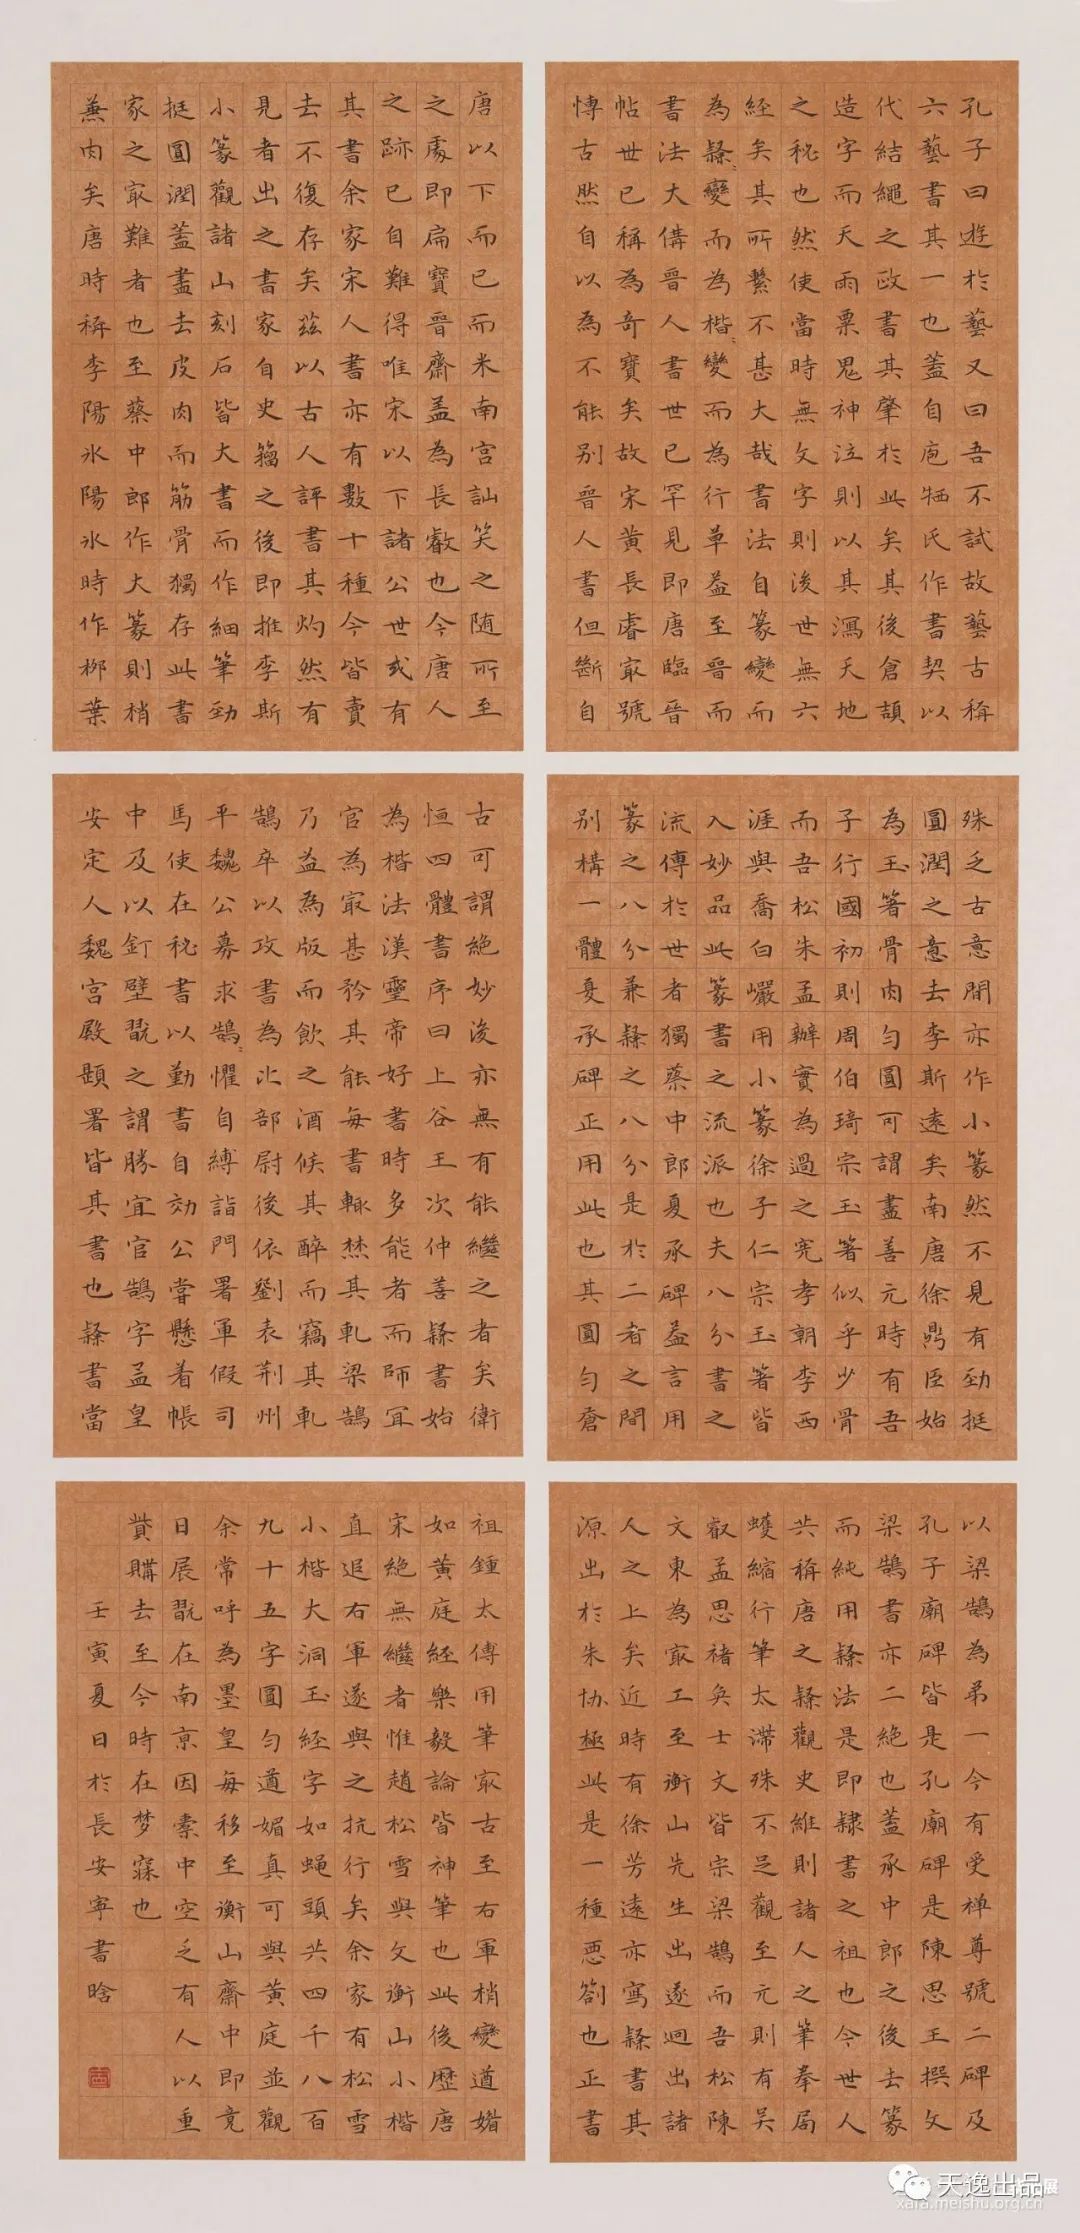 孔子曰遊於藝又曰吾不試故藝古稱
六藝書其一也蓋自庖犧氏作書契以
代結繩之政書其肇於此矣其後倉頡
造字而天雨粟鬼神泣則以其瀉天地
之秘也然使當時無文字則後世無六
經矣其所繫不甚大哉書法自篆變而
為隸隸變而為楷楷變而為行草蓋至晉而
書法大備晉人書世已罕見即唐臨晉
帖世已稱為奇寶矣故宋黃長睿最號
博古然自以為不能别晉人書但斷自
唐以下而已而米南宮訕笑之隨所至
之處即扁寶晉齋蓋為長睿也今唐人
之跡已自難得唯宋以下諸公世或有
其書余家宋人書亦有數十種今皆賣
去不復存矣茲以古人評書其灼然有
見者出之書家自史籀之後即推李斯
小篆觀諸山刻石皆大書而作細筆勁
挺圓潤蓋盡去皮肉而筋骨獨存此書
家之最難者也至蔡中郎作大篆則稍
兼肉矣唐時稱李陽氷陽氷時作柳葉
殊乏古意間亦作小篆然不見有勁挺
圓潤之意去李斯遠矣南唐徐鼎臣始
為玉箸骨肉勻圓可謂盡善元時有吾
子行國初則周伯琦宗玉箸似乎少骨
而吾松朱孟辨實為過之宪孝朝李西
涯與喬白巖用小篆徐子仁宗玉箸皆
入妙品此篆書之流派也夫八分書之
流傳於世者獨蔡中郎夏承碑蓋言用
篆之八分兼隸之八分是於二者之間
別構一體夏承碑正用此也其圓勻蒼
古可謂絕妙後亦無有能繼之者矣衛
恒四體書序曰上谷王次仲善隸書始
為楷法漢靈帝好書時多能者而師宜
官為最甚矜其能每書輒焚其軋梁鵠
乃益為版而飲之酒候其醉而竊其軋
鵠卒以攻書為北部尉後依劉表荆州
平魏公募求鵠鵠懼自縛詣門署軍假司
馬使在秘書以勤書自効公嘗懸着帳
中及以釘壁翫之謂勝宜官鵠字孟皇
安定人魏宮殿題署皆其書也隸書當
以梁鵠為弟一今有受禅尊號二碑及
孔子廟碑皆是孔廟碑是陳思王撰文
梁鵠書亦二絶也蓋承中郎之後去篆
而純用隸法是即隸書之祖也今世人
共稱唐之隸觀史維則諸人之筆拳局
蠖縮行筆太滯殊不足觀至元則有吳
叡孟思褚奐士文皆宗梁鵠而吾松陳
文東為最工至衡山先生出遂迥出諸
人之上矣近時有徐芳遠亦寫隸書其
源出於朱協極此是一種惡劄也正書
祖鍾太傅用筆最古至右軍稍變遒媚
如黃庭經樂毅論皆神筆也此後歷唐
宋絶無繼者惟趙松雪與文衡山小楷
直追右軍遂與之抗行矣余家有松雪
小楷大洞玉經字如蠅頭共四千八百
九十五字圓勻遒媚真可與黃庭並觀
余常呼為墨皇每移至衡山齋中即竟
日展翫在南京因橐中空乏有人以重
貲購去至今時在梦寐也
壬寅夏日於長安寧書晗
天逸出品
展
xafa.meishu.org.cn